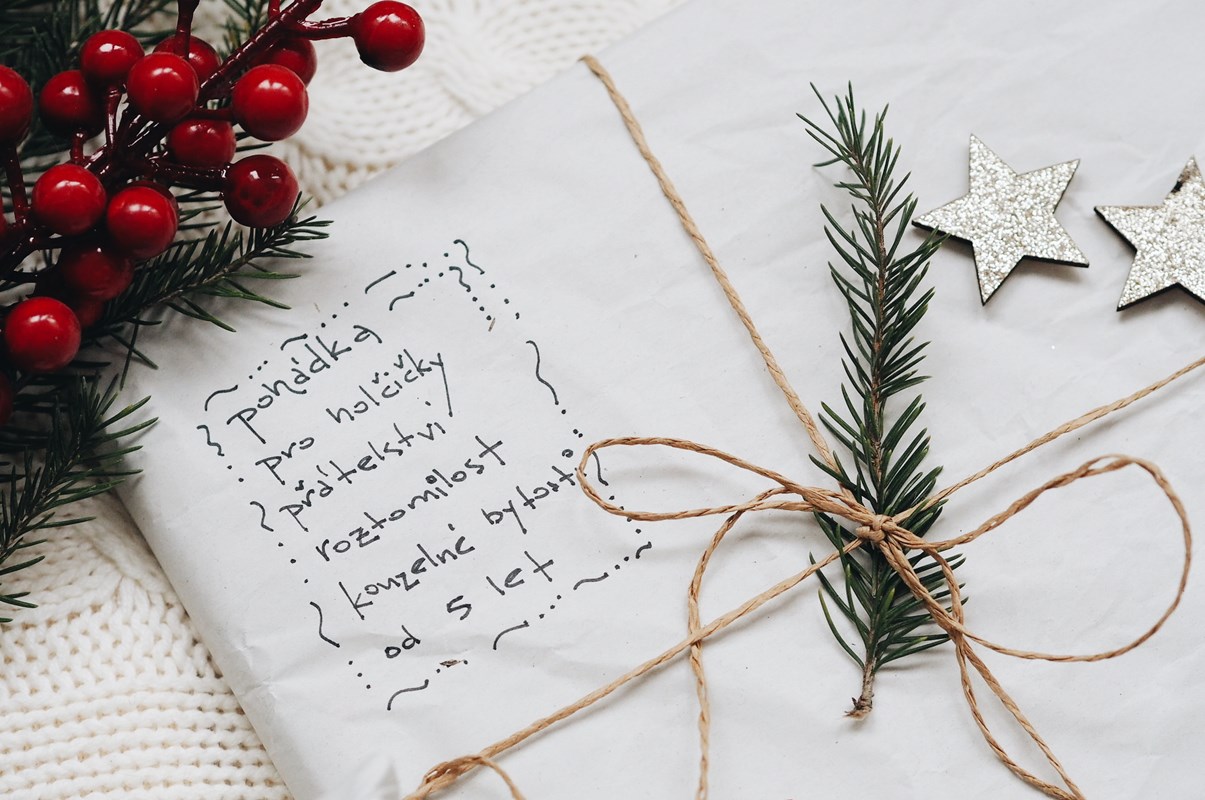 pohádka
pro holčičky
přátelství
roztomilost
kouzelné bytosti
od 5 let